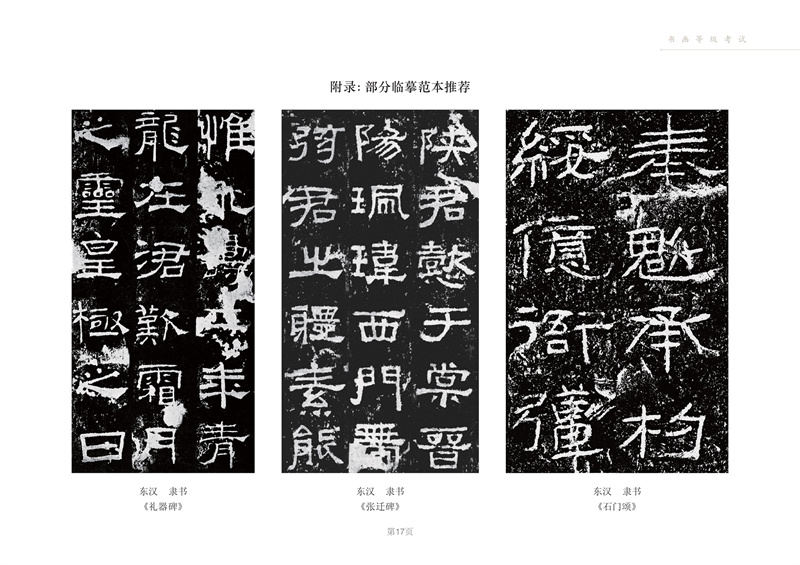 书画等级考试
附录：部分临摹范本推荐
惟永壽二年青
龍在涒歎霜月
之靈皇極之日
陝君懿于棠晉
陽珮瑋西門帶
弦君之體素能
奉魁承杓
綏億衙彊
东汉 隶书
《礼器碑》
东汉 隶书
《张迁碑》
东汉 隶书
《石门颂》
第17页